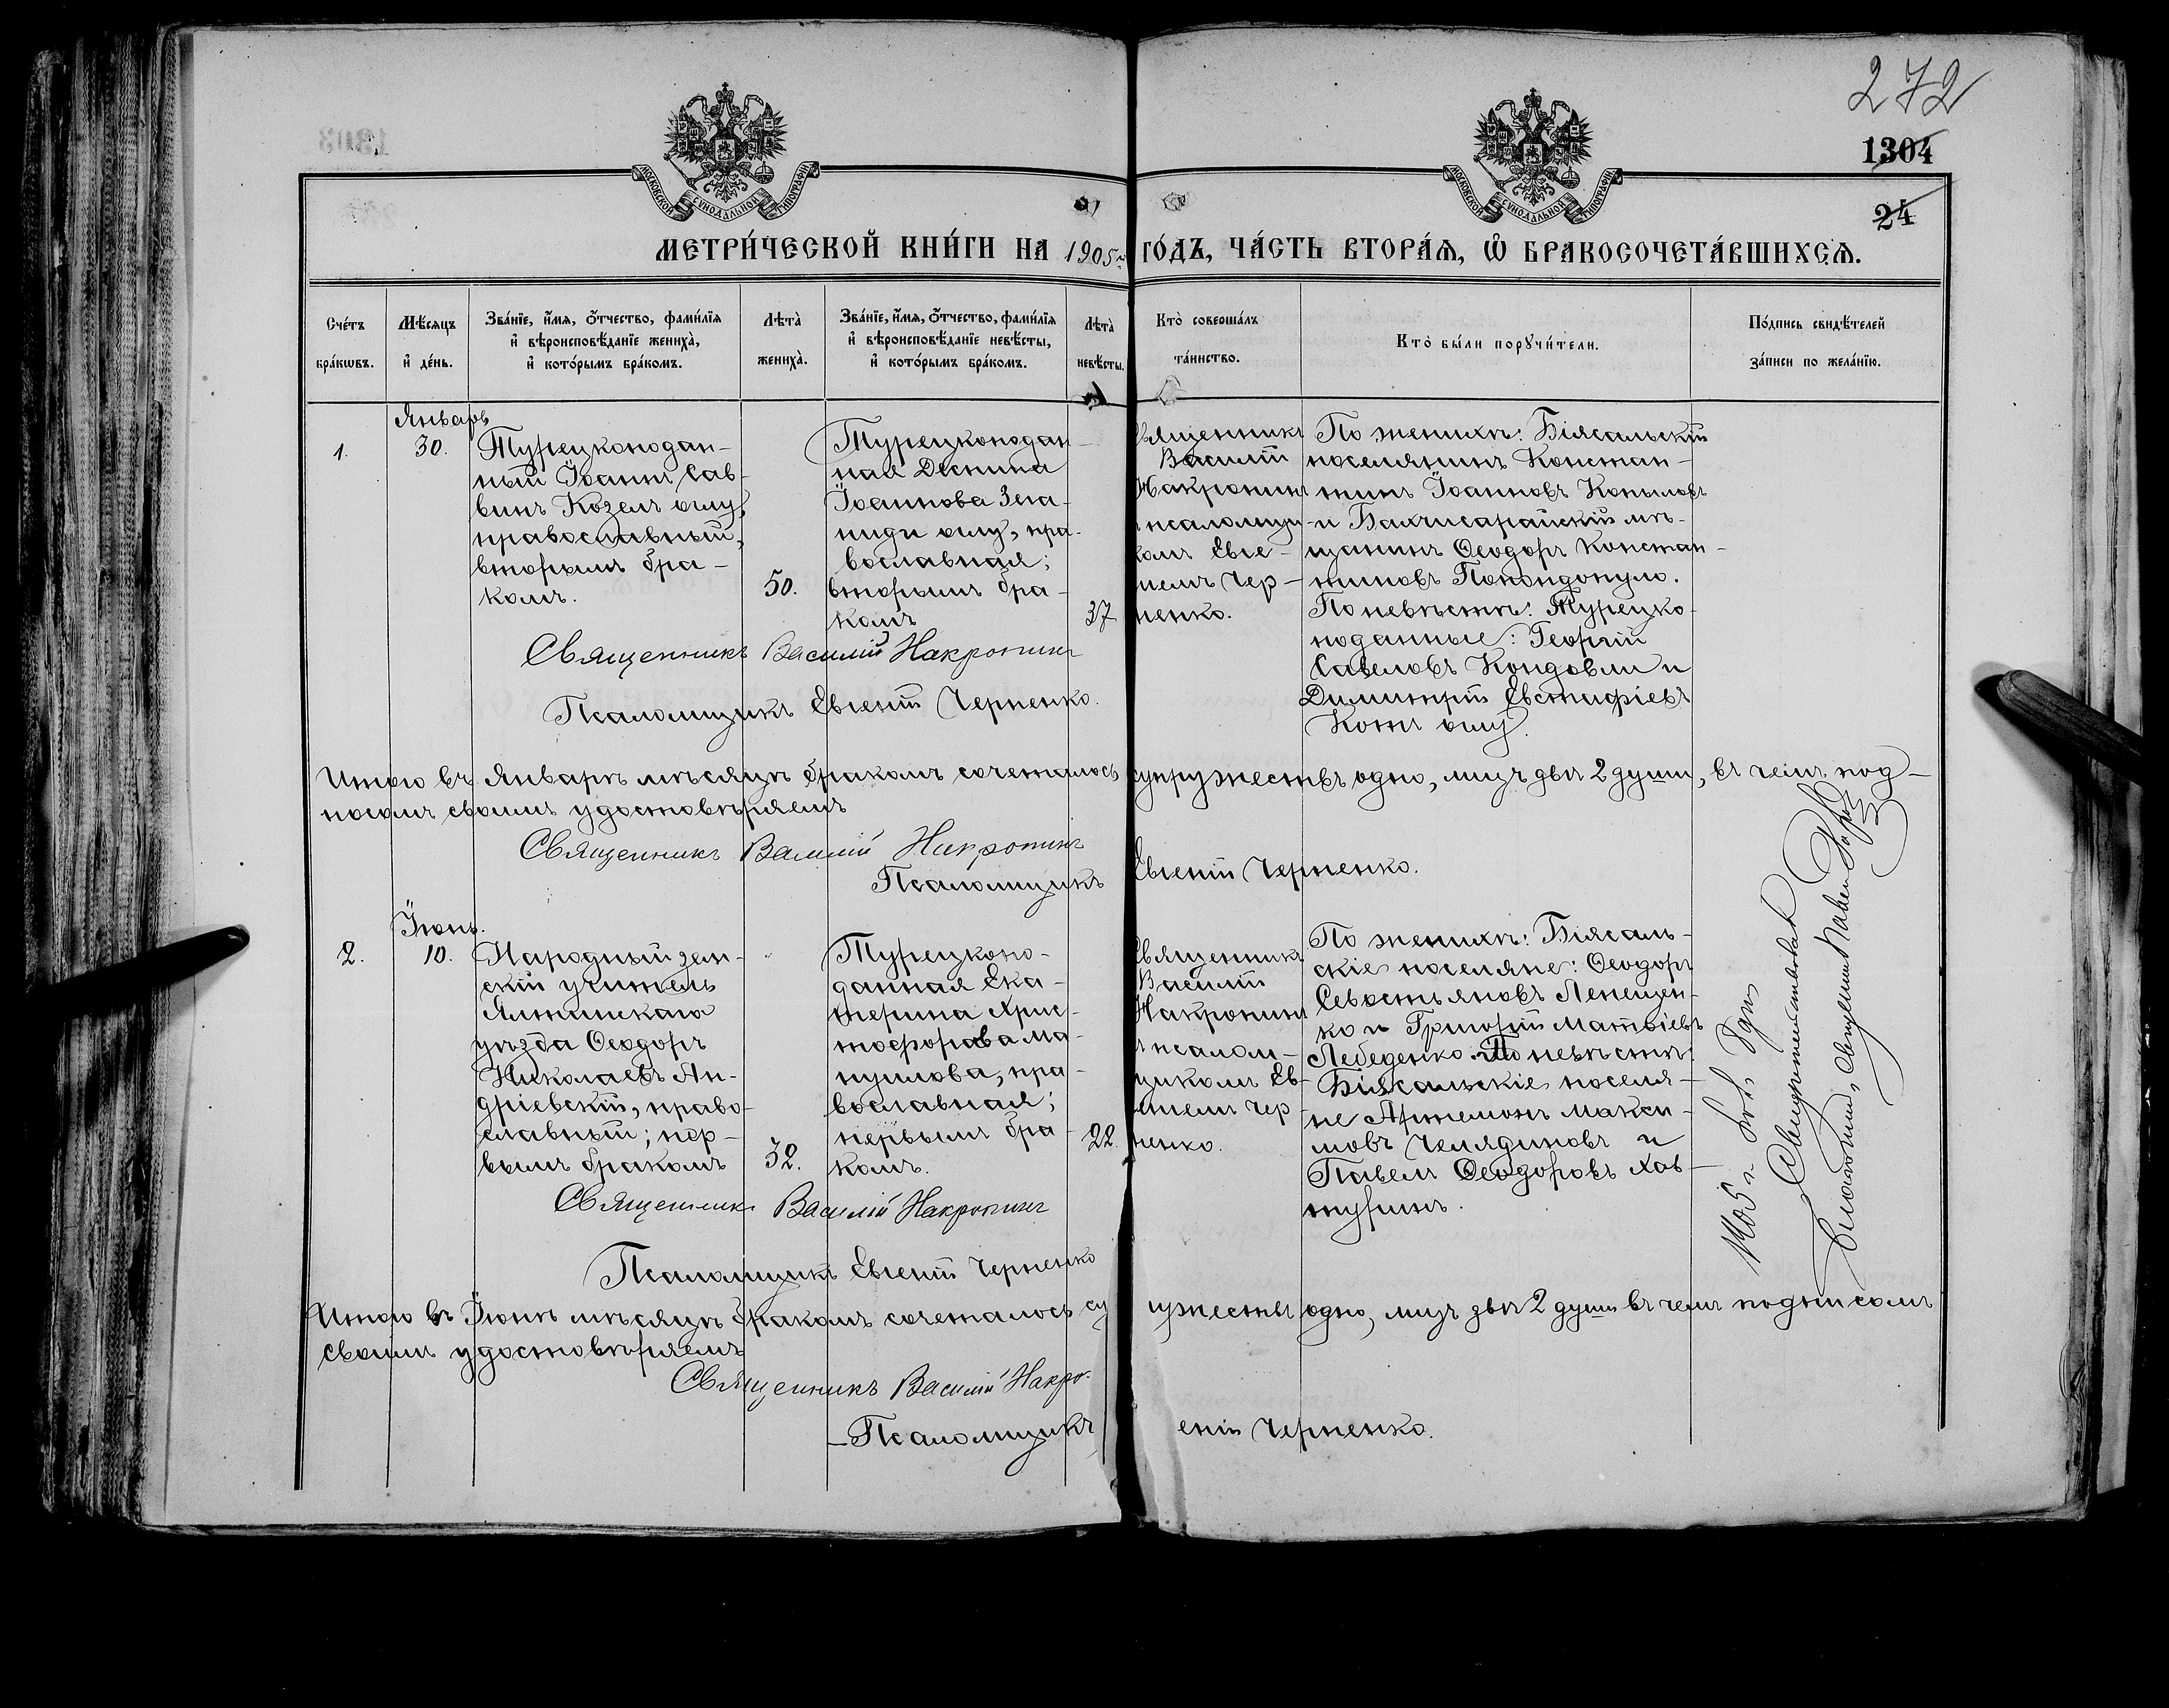 272
1304
24
МОСКОВСКОЙ СѴНОДАЛЬНОЙ ТИПОГРАФІИ
МОСКОВСКОЙ СѴНОДАЛЬНОЙ ТИПОГРАФІИ
МЕТРИ́ЧЕСКОЙ КНИ́ГИ НА 1905 г. ГО́ДЪ, ЧА́СТЬ ВТОРА́Ѧ, Ѡ҆ БРАКОСОЧЕТА́ВШИХСѦ.
Сче́тъ
бра́кѡвъ.
Мѣ́сѧцъ
и҆ де́нь.
Зва́нїе, и҆́мѧ, ѻ҆́тчество, фами́лїѧ
и҆ вѣроисповѣ́данїе жениха̀,
и҆ кото́рымъ бра́комъ.
Лѣта̀
жениха̀.
Зва́нїе, и҆́мѧ, ѻ҆́тчество, фами́лїѧ
и҆ вѣроисповѣ́данїе невѣ́сты,
и҆ кото́рымъ бра́комъ.
Лѣта̀
невѣ́сты.
Кто̀ соверша́лъ
та́инство.
Кто̀ бы́ли порꙋчи́тели.
По́дпись свидѣ́телей
за́писи по жела́нїю.
1.
Январь
30.
Турецкоподан-
ный Іоаннъ Сав-
винъ Козелъ оглу,
православный,
вторымъ бра-
комъ.
50.
Турецкоподан-
ная Деспина
Іоаннова Зега-
ниди оглу, пра-
вославная;
вторымъ бра-
комъ
37
Священникъ
Василій
Накропинъ
псаломщи-
комъ Евге-
ніемъ Чер-
ненко.
По женихѣ: Біясальскій
поселянинъ Констан-
тинъ Іоанновъ Копыловъ
и Бахчисарайскій мѣ-
щанинъ Ѳеодоръ Констан-
тиновъ Попондопуло.
По невѣстѣ: Турецко-
поданные: Георгій
Савеловъ Кондовли и
Димитрій Евстафіевъ
Котъ оглу.
Священникъ Василій Накропинъ
Псаломщикъ Евгеній Черненко.
Итого въ Январѣ мѣсяцѣ бракомъ сочеталось супружествъ одно, лицъ двѣ 2 души, въ чемъ под-
писомъ своимъ удостовѣряемъ
Священникъ Василій Накропинъ
Псаломщикъ Евгеній Черненко.
2.
Іюнь.
10.
Народный зем-
скій учитель
Ялтинскаго
уѣзда Ѳеодоръ
Николаевъ Ан-
дріевскій, право-
славный; пер-
вымъ бракомъ
32.
Турецкопо-
данная Ека-
терина Хрис-
тофорова Ма-
нуилова, пра-
вославная;
первымъ бра-
комъ.
22.
Священникъ
Василій
Накропинъ
псалом-
щикомъ Ев-
геніемъ Чер-
ненко.
По женихѣ: Біясаль-
скіе поселяне: Ѳеодоръ
Севостьяновъ Лепещен-
ко и Григорій Матвіевъ
Лебеденко. По невѣстѣ:
Біясальскіе поселя-
не Артемонъ Макси-
мовъ Челядиновъ и
Павелъ Ѳеодоровъ Хав-
туринъ.
Священникъ Василій Накропинъ
Псаломщикъ Евгеній Черненко
Итого въ Іюнѣ мѣсяцѣ бракомъ сочеталось су ужествъ одно, лицъ двѣ 2 души въ чемъ подписомъ
своимъ удостовѣряемъ
Священникъ Василій Накро-
Псаломщикъ еній Черненко.
1905 г.
Свидѣтельствовалъ